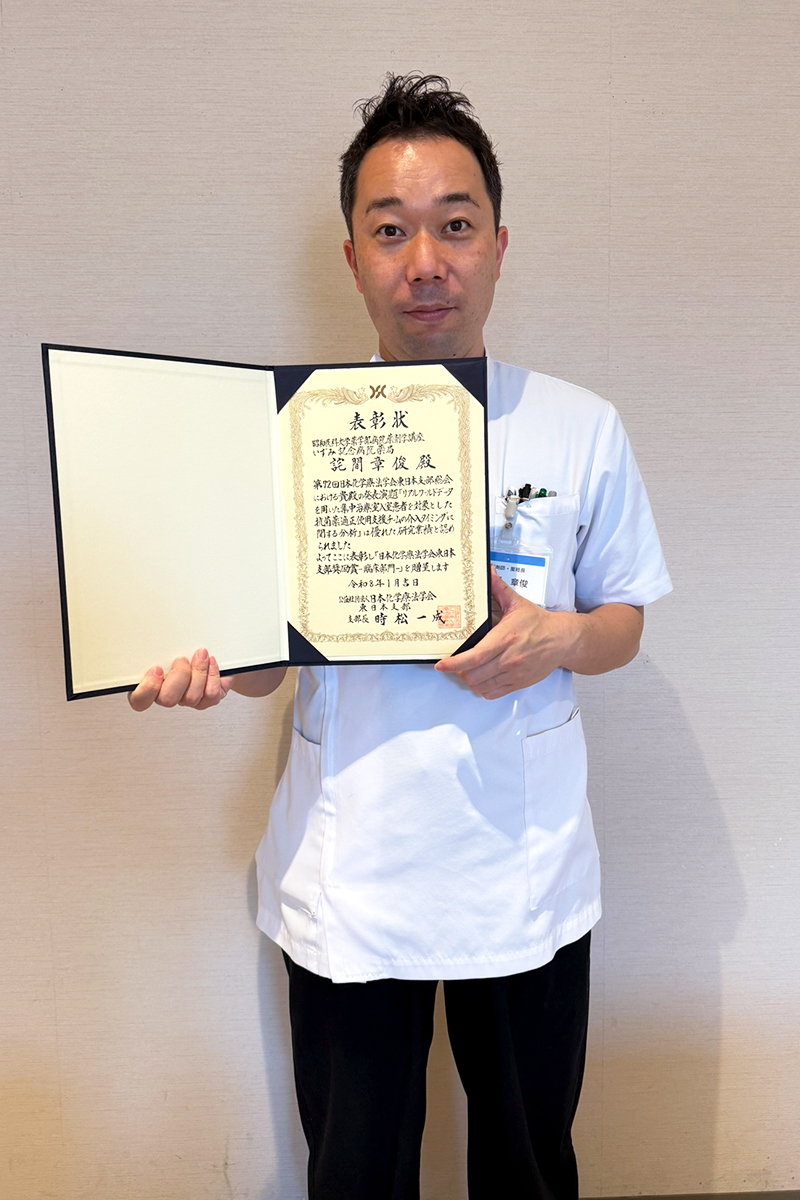 表彰状
昭和医科大学薬学部病院薬剤学講座
いずみ記念病院薬局
詫間章俊 殿
第72回日本化学療法学会東日本支部総会
における貴殿の発表演題「リアルワールドデータ
を用いた集中治療室入室患者を対象とした
抗菌薬適正使用支援チームの介入タイミングに
関する分析」は優れた研究業績と認め
られました
よってここに表彰し「日本化学療法学会東日本
支部奨励賞-臨床部門-」を贈呈します
令和8年1月吉日
公益社団法人日本化学療法学会
東日本支部
支部長 時松一成
薬剤師・薬局長
章俊